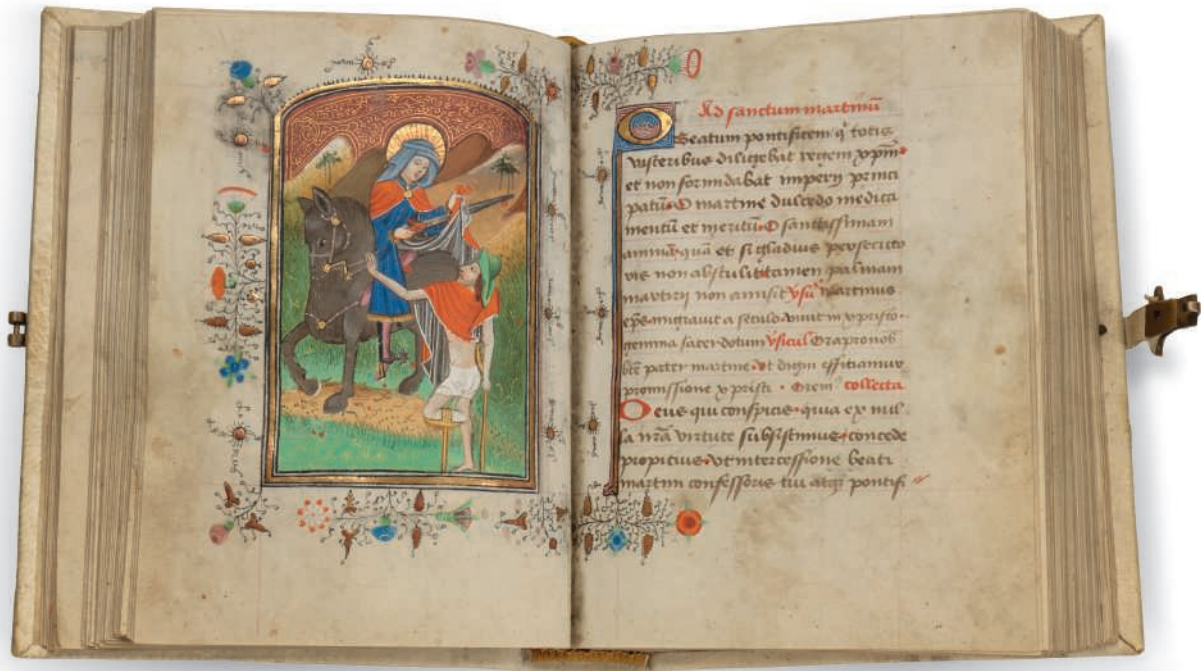 Ad sanctum martinū
O Beatum pontificem q̄ totis
visceribus diligebat regem xp̄m
et non formidabat imperij princi
patū O martine dulcedo medica
mentū et meritū O sanctissimam
animā quā et si gladius persecuto
ris non abstulit tamen palmam
martirij non amisit vsū martinus
ep̄s migravit a seculo vivit in xpristo
gemma sacerdotum vsicul Ora pro nob
bte pater martine vt digni efficiamur
promissione xpristi Orem collecta
Deus qui conspicis quia ex nul
la nr̄a virtute subsistimus concede
propicius vt intercessione beati
martini confessoris tui atq; pontifi